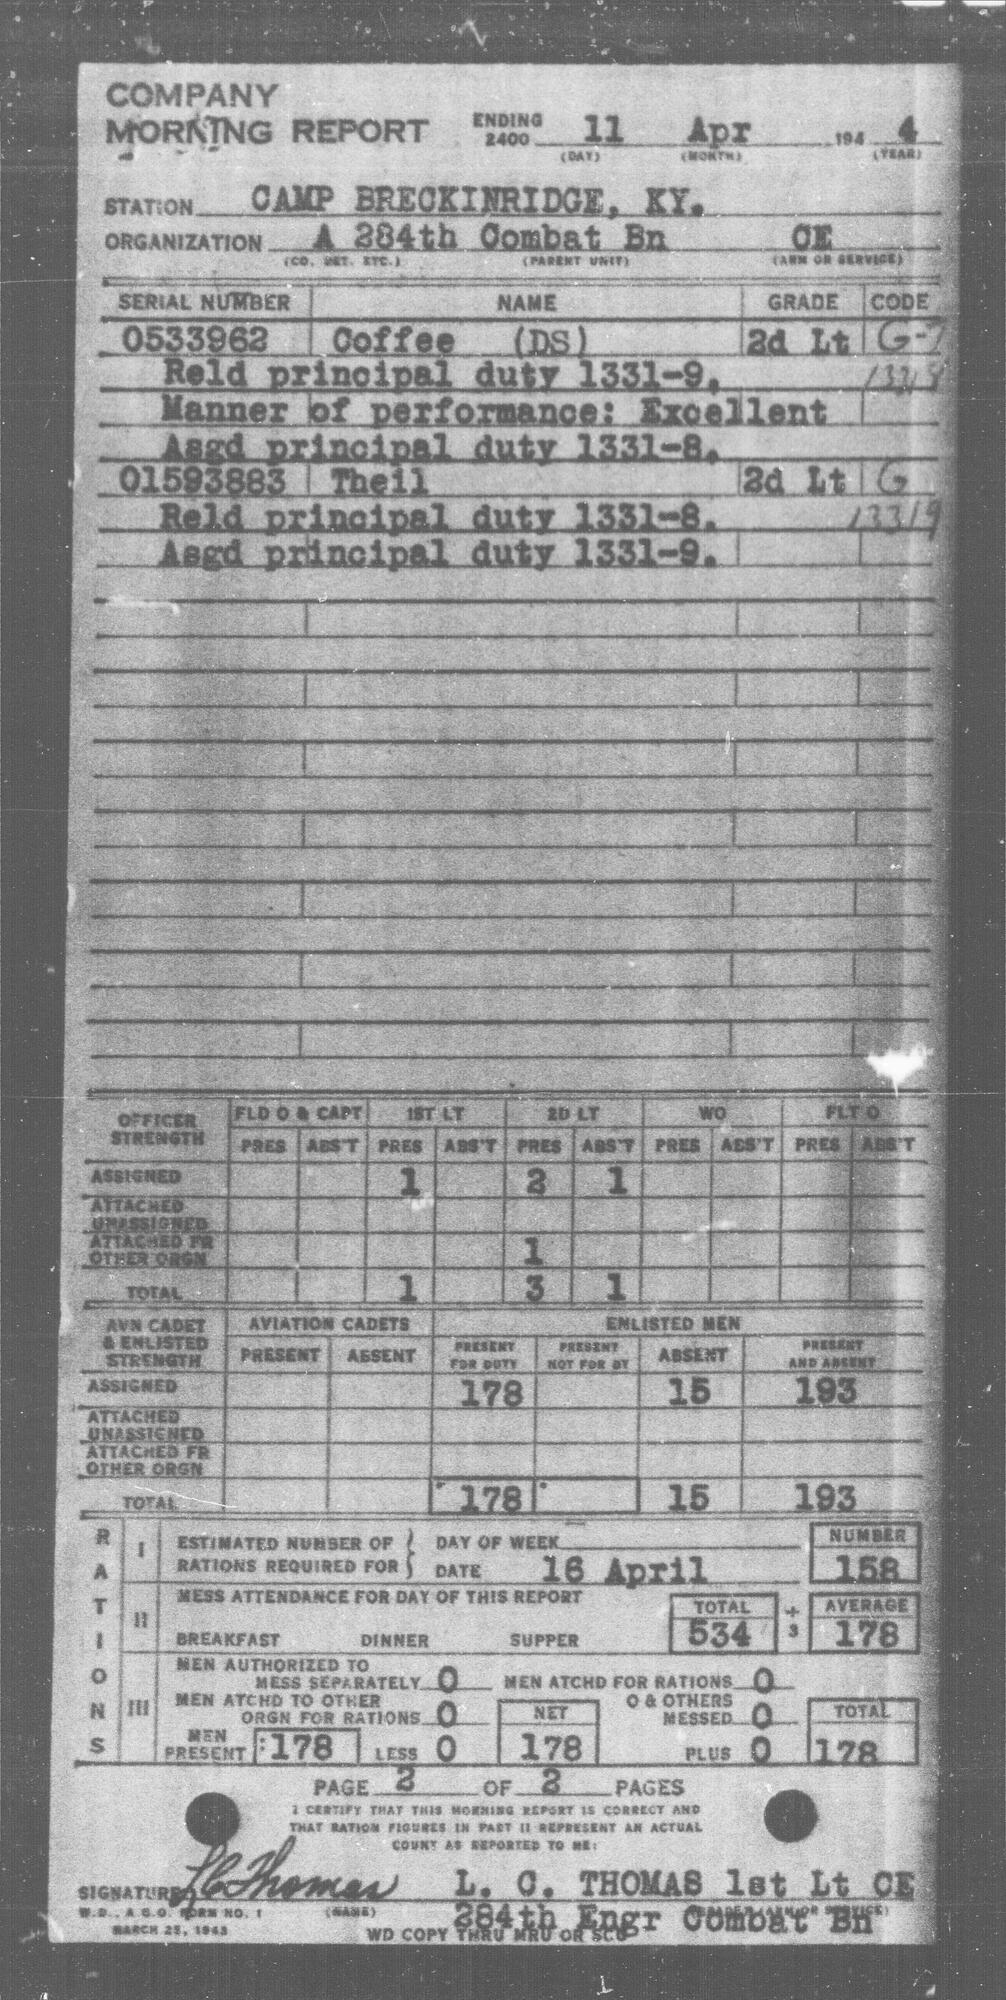 COMPANY
MORNING REPORT ENDING 2400 11 Apr 194 4
(DAY) (MONTH) (YEAR)
STATION CAMP BRECKINRIDGE, KY.
ORGANIZATION A 284th Combat Bn CE
(CO. DET. ETC.) (PARENT UNIT) (ARM OR SERVICE)
SERIAL NUMBER NAME GRADE CODE
0533962 Coffee (DS) 2d Lt G-7
Reld principal duty 1331-9.
Manner of performance: Excellent
Asgd principal duty 1331-8.
01593883 Theil 2d Lt G
Reld principal duty 1331-8. 13319
Asgd principal duty 1331-9.
OFFICER STRENGTH FLD O & CAPT 1ST LT 2D LT WO FLT O
PRES ABS'T PRES ABS'T PRES ABS'T PRES ABS'T PRES ABS'T
ASSIGNED 1 2 1
ATTACHED UNASSIGNED
ATTACHED FR OTHER ORGN 1
TOTAL 1 3 1
AVN CADET & ENLISTED STRENGTH AVIATION CADETS ENLISTED MEN
PRESENT ABSENT PRESENT FOR DUTY PRESENT NOT FOR DY ABSENT PRESENT AND ABSENT
ASSIGNED 178 15 193
ATTACHED UNASSIGNED
ATTACHED FR OTHER ORGN
TOTAL 178 15 193
RATIONS
I ESTIMATED NUMBER OF RATIONS REQUIRED FOR } DAY OF WEEK NUMBER
DATE 16 April 158
II MESS ATTENDANCE FOR DAY OF THIS REPORT TOTAL ÷ 3 AVERAGE
BREAKFAST DINNER SUPPER 534 178
III MEN AUTHORIZED TO MESS SEPARATELY 0 MEN ATCHD FOR RATIONS 0
MEN ATCHD TO OTHER ORGN FOR RATIONS 0 NET O & OTHERS MESSED 0 TOTAL
MEN PRESENT 178 LESS 0 178 PLUS 0 178
PAGE 2 OF 2 PAGES
I CERTIFY THAT THIS MORNING REPORT IS CORRECT AND
THAT RATION FIGURES IN PART II REPRESENT AN ACTUAL
COUNT AS REPORTED TO ME:
SIGNATURE L C Thomas L. C. THOMAS 1st Lt CE
W.D., A.G.O. FORM NO. 1 (NAME) 284th Engr Combat Bn (GRADE) (ARM OR SERVICE)
MARCH 25, 1943 WD COPY THRU MRU OR SCU